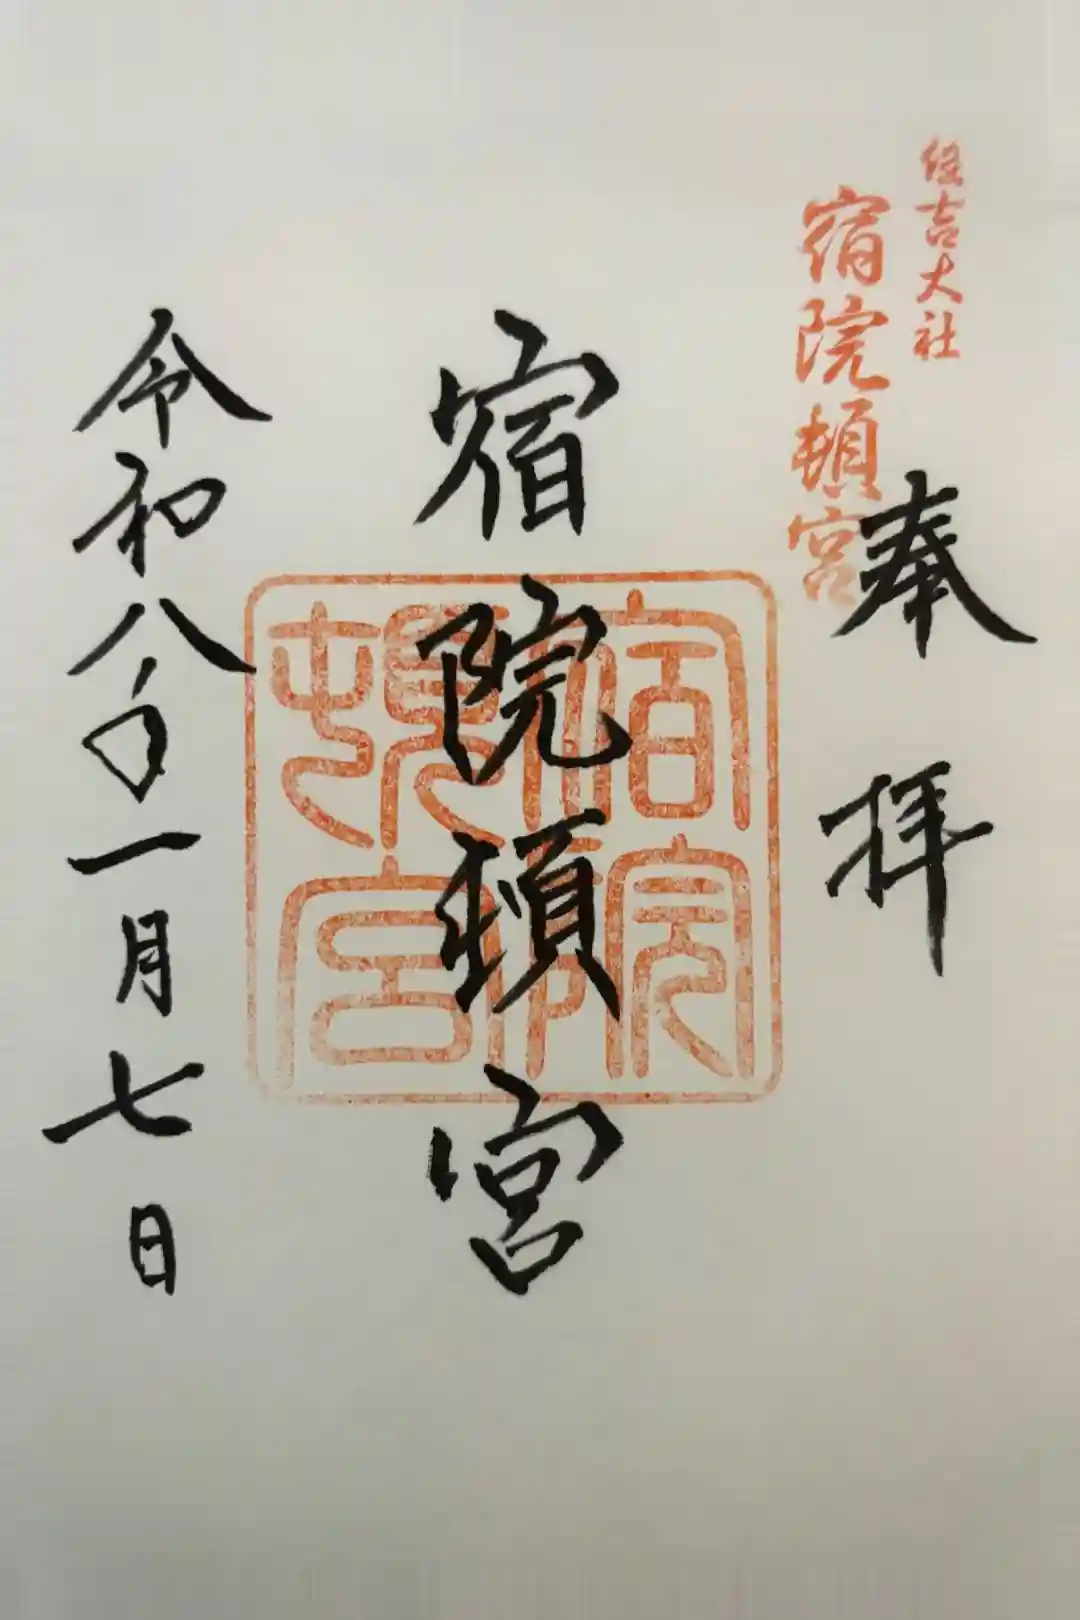 住吉大社
宿院頓宮
奉拝
宿院頓宮
令和八年一月七日